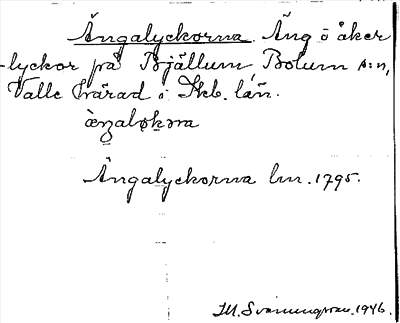 Ängalyckorna. Äng o åker
-lyckor på Bjällum Bolum s:n,
Valle härad i Skb. län.
Ängalyckorna lm. 1795.
1946.